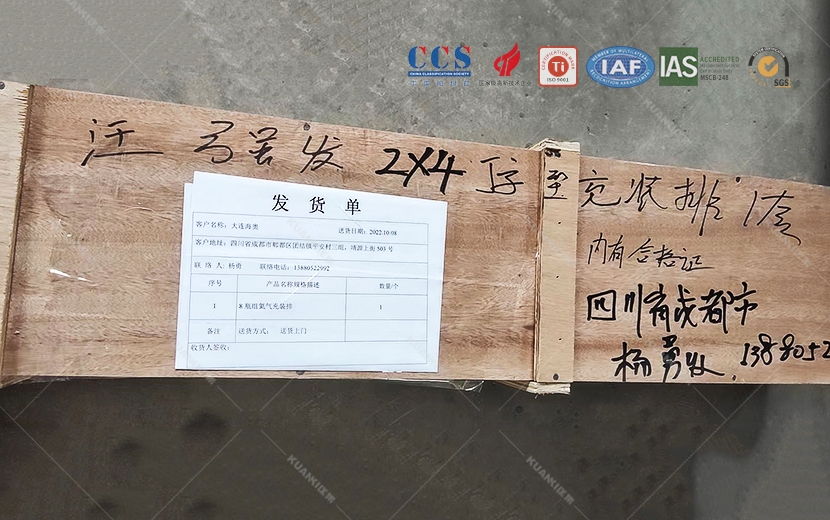 CCS
CHINA CLASSIFICATION SOCIETY
国家级高新技术企业
CERTIFICATION MARK
Ti
ISO 9001
MEMBER OF MULTILATERAL
IAF
RECOGNITION ARRANGEMENT
IAS
ACCREDITED
MSCB-248
SGS
2X4
至充装排
内有合格证
四川省成都市
杨勇收 1388052
发货单
客户名称：大连海奥 送货日期：2022.10.08
客户地址：四川省成都市郫都区团结镇平安村三组，靖源上街503号
联络人：杨勇 联络电话：13880522992
序号 产品名称规格描述 数量/个
1 8瓶组氦气充装排 1
备注 送货方式： 送货上门
收货人签收：
KUANKI
KUANKI